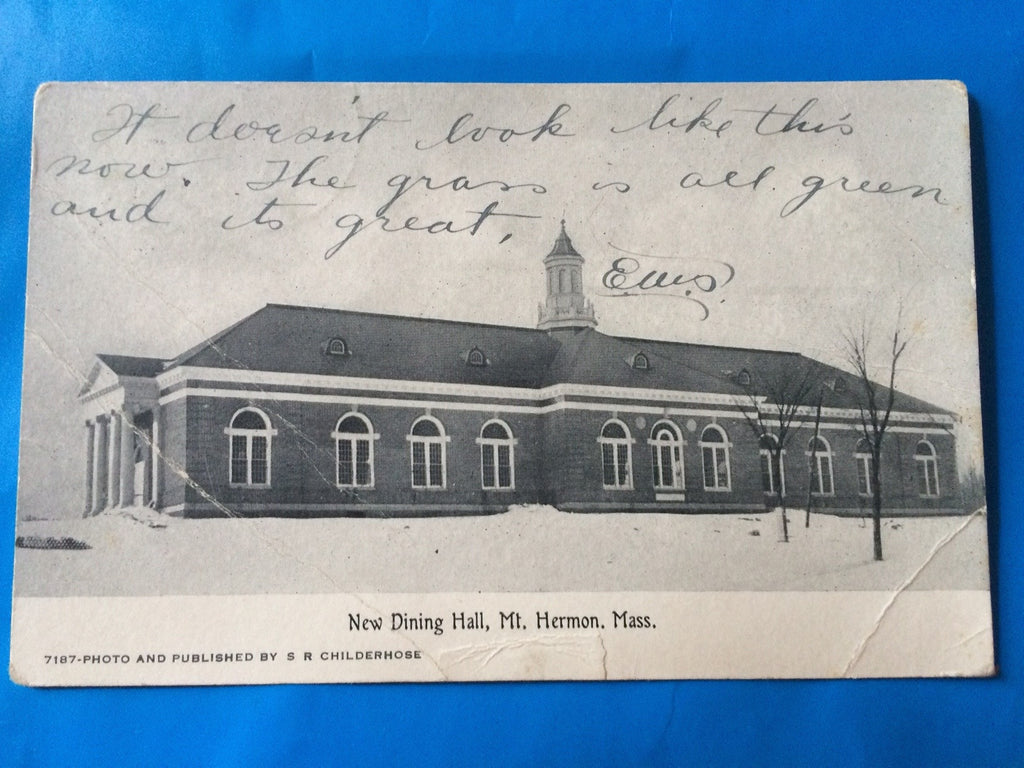 It doesn't look like this
now. The grass is all green
and its great,
New Dining Hall, Mt. Hermon. Mass.
7187-PHOTO AND PUBLISHED BY S R CHILDERHOSE